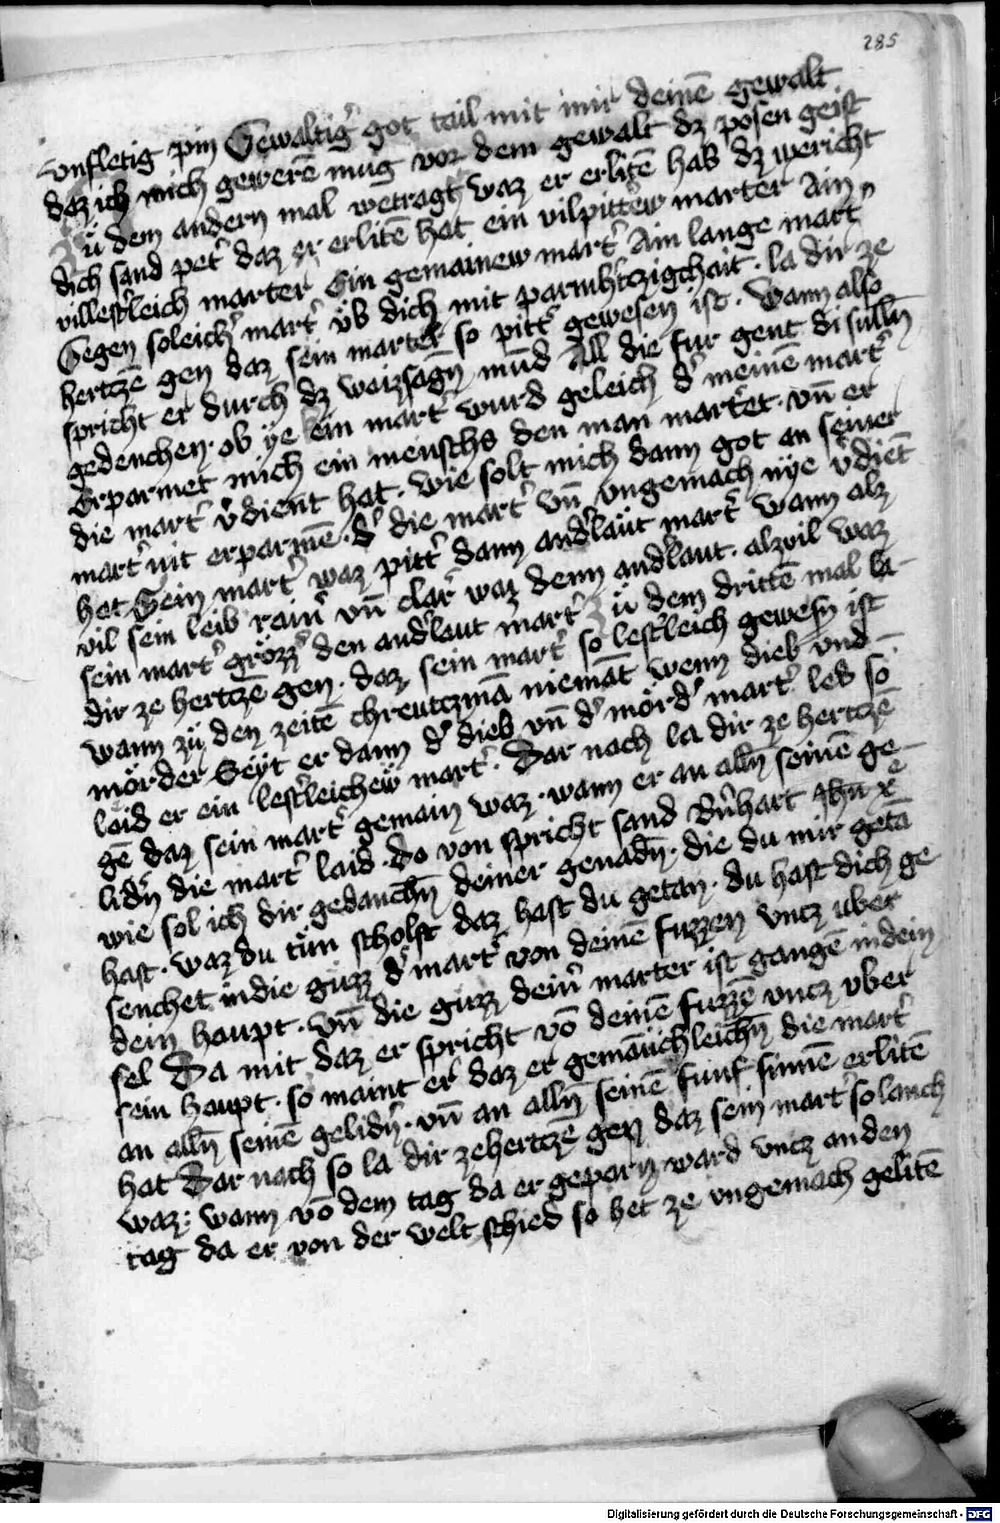 285
vnfletig pin Gewaltig᷑ got tail mit mir deinē gewalt
daz ich mich gewerē mug vor dem gewalt dz posen geist
Zů dem andern mal wetragt waz er erlitē hab dz wericht
dich sand pet᷑ daz er erlitē hat ein vilpittrew marter Ain
villestleich marter Ein gemainew mart᷑ Ain lange mart᷑
Gegen soleich᷑ mart᷑ üb dich mit parmh᷑tzigchait · la dir ze
hertzē gen daz sein marter so pitt᷑ gewesen ist · wann also
spricht er durch dz waizsagn̄ mūd All die fur gent di sulln̄
gedenchen · ob ÿe ein mart᷑ wurd geleich d᷑ meinē mart᷑
Erparmet mich ein menschs den man martet · vn̄ er
die mart᷑ v᷑dient hat · wie solt mich dann got an seiner
mart᷑ nit erparmē · d᷑ die mart᷑ vn̄ vngemach nÿe v᷑diēt
hat Sein mart᷑ waz pitt᷑ dann and᷑läut mart᷑ wann alz
vil sein leib rain᷑ vn̄ clar᷑ waz denn and᷑laut · alzvil waz
sein mart᷑ grözz᷑ den and᷑laut mart᷑ Zü dem drittē mal la
dir ze hertzē gen · daz sein mart᷑ so lest᷑leich gewesn̄ ist
wann zü den zeitē chreutzmā niemāt wenn dieb vnd
mörder Seyt er dann d᷑ dieb vn̄ d᷑ mörd᷑ mart᷑ led so
laid er ein lest᷑leichew mart᷑ · Dar nach la dir ze hertzē
gē daz sein mart᷑ gemain waz · wann er an alln̄ seinē ge
lidn̄ die mart᷑ laid · do von spricht sand B᷑nhart Jhū xp̄e
wie sol ich dir gedanchn̄ deiner genadn̄ · die du mir getā
hast · waz du tün scholst daz hast du getan · du hast dich ge
senchet in die güzz d᷑ mart᷑ von deinē fuzzen vntz uber
dein haupt · vn̄ die guzz dein᷑ marter ist gangē in dein
sel Da mit daz er spricht vō deinē fuzzē vntz vber
sein haupt · so maint er daz er gemäüchleichn̄ die mart᷑
an alln̄ seinē gelidn̄ · vn̄ an alln̄ seinē funf sinnē erlitē
hat Dar nach so la dir ze hertzē gen daz sein mart᷑ so lanch
waz : wann vō dem tag da er geparn ward vntz an den
tag da er von der welt schied so het ze vngemach gelitē
Digitalisierung gefördert durch die Deutsche Forschungsgemeinschaft - DFG